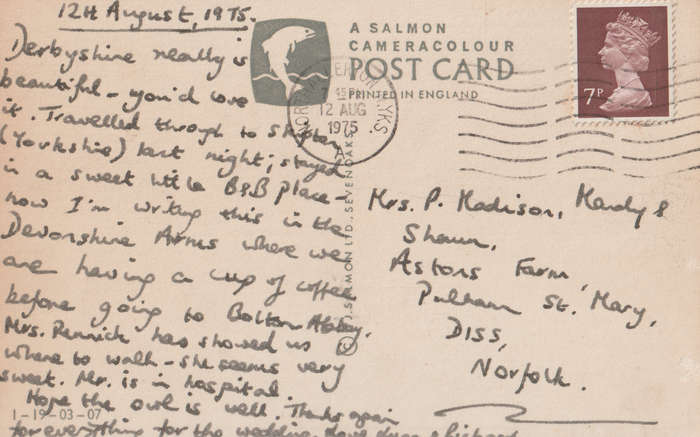 12th August, 1975.
Derbyshire really is
beautiful - you'd love
it. Travelled through to Skipton
(Yorkshire) last night; stayed
in a sweet little B&B place -
now I'm writing this in the
Devonshire Arms where we
are having a cup of coffee
before going to Bolton Abbey.
Mrs. Rennick has showed us
where to walk - she seems very
sweet. Mr. is in hospital.
Hope the owl is well. Thanks again
for everything for the wedding.
1-19-03-07
A SALMON
CAMERACOLOUR
POST CARD
PRINTED IN ENGLAND
12 AUG
1975
YKS.
7P
© J. SALMON LTD., SEVENOAKS
Mrs. P. Madison, Mandy &
Shaun,
Astons Farm,
Pulham St. Mary,
Diss,
Norfolk.